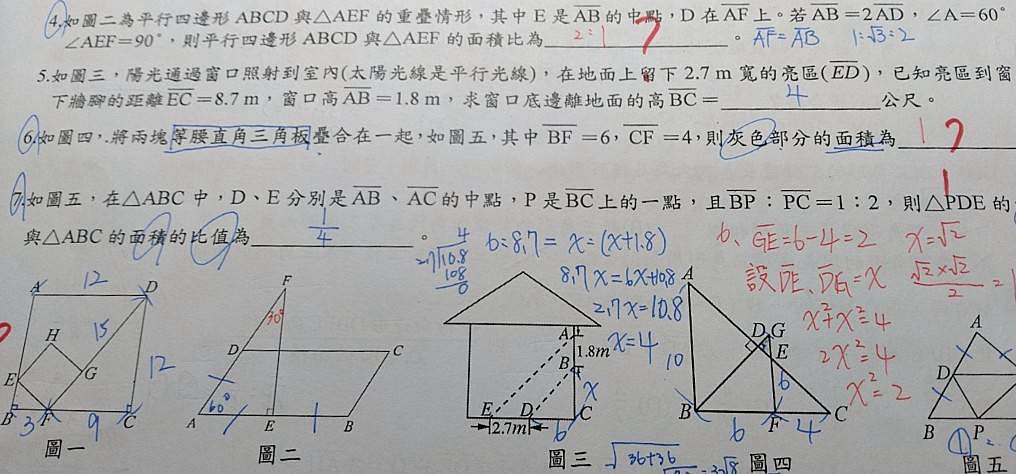 4.如圖二為平行四邊形 ABCD 與△AEF 的重疊情形,其中 E 是AB的中點,D 在AF上。若AB=2AD,∠A=60°
∠AEF=90°,則平行四邊形 ABCD 與△AEF 的面積比為 2:1 。 AF=AB 1:√3:2
5.如圖三,陽光通過窗口照射到室內(太陽光線是平行光線),在地面上留下 2.7 m 寬的亮區(ED),已知亮區到窗
下牆腳的距離EC=8.7 m,窗口高AB=1.8 m,求窗口底邊離地面的高BC= 4 公尺。
6.如圖四,將兩塊等腰直角三角板疊合在一起,如圖五,其中 BF=6,CF=4,則灰色部分的面積為
1
7.如圖五,在△ABC 中,D、E 分別是AB、AC的中點,P 是BC上的一點,且BP:PC=1:2,則△PDE 的
與△ABC 的面積的比值為 1/4 。
4
2.7√10.8
108
0
6:8.7=x=(x+1.8)
8.7x=6x+10.8
2.7x=10.8
x=4
6、GE=6-4=2 x=√2
設DE、DG=x
√2×√2
2
=1
x²+x²=4
2x²=4
x²=2
A 12 D
H 15
G 12
E
B 3 F 9 C
圖一
F
30°
D C
60°
A E 1 B
圖二
A
1.8m
B
x
E D C
2.7m 6
圖三
√36+36
A
D G
E
10 6
B 6 F 4 C
圖四
A
D
B P
圖五